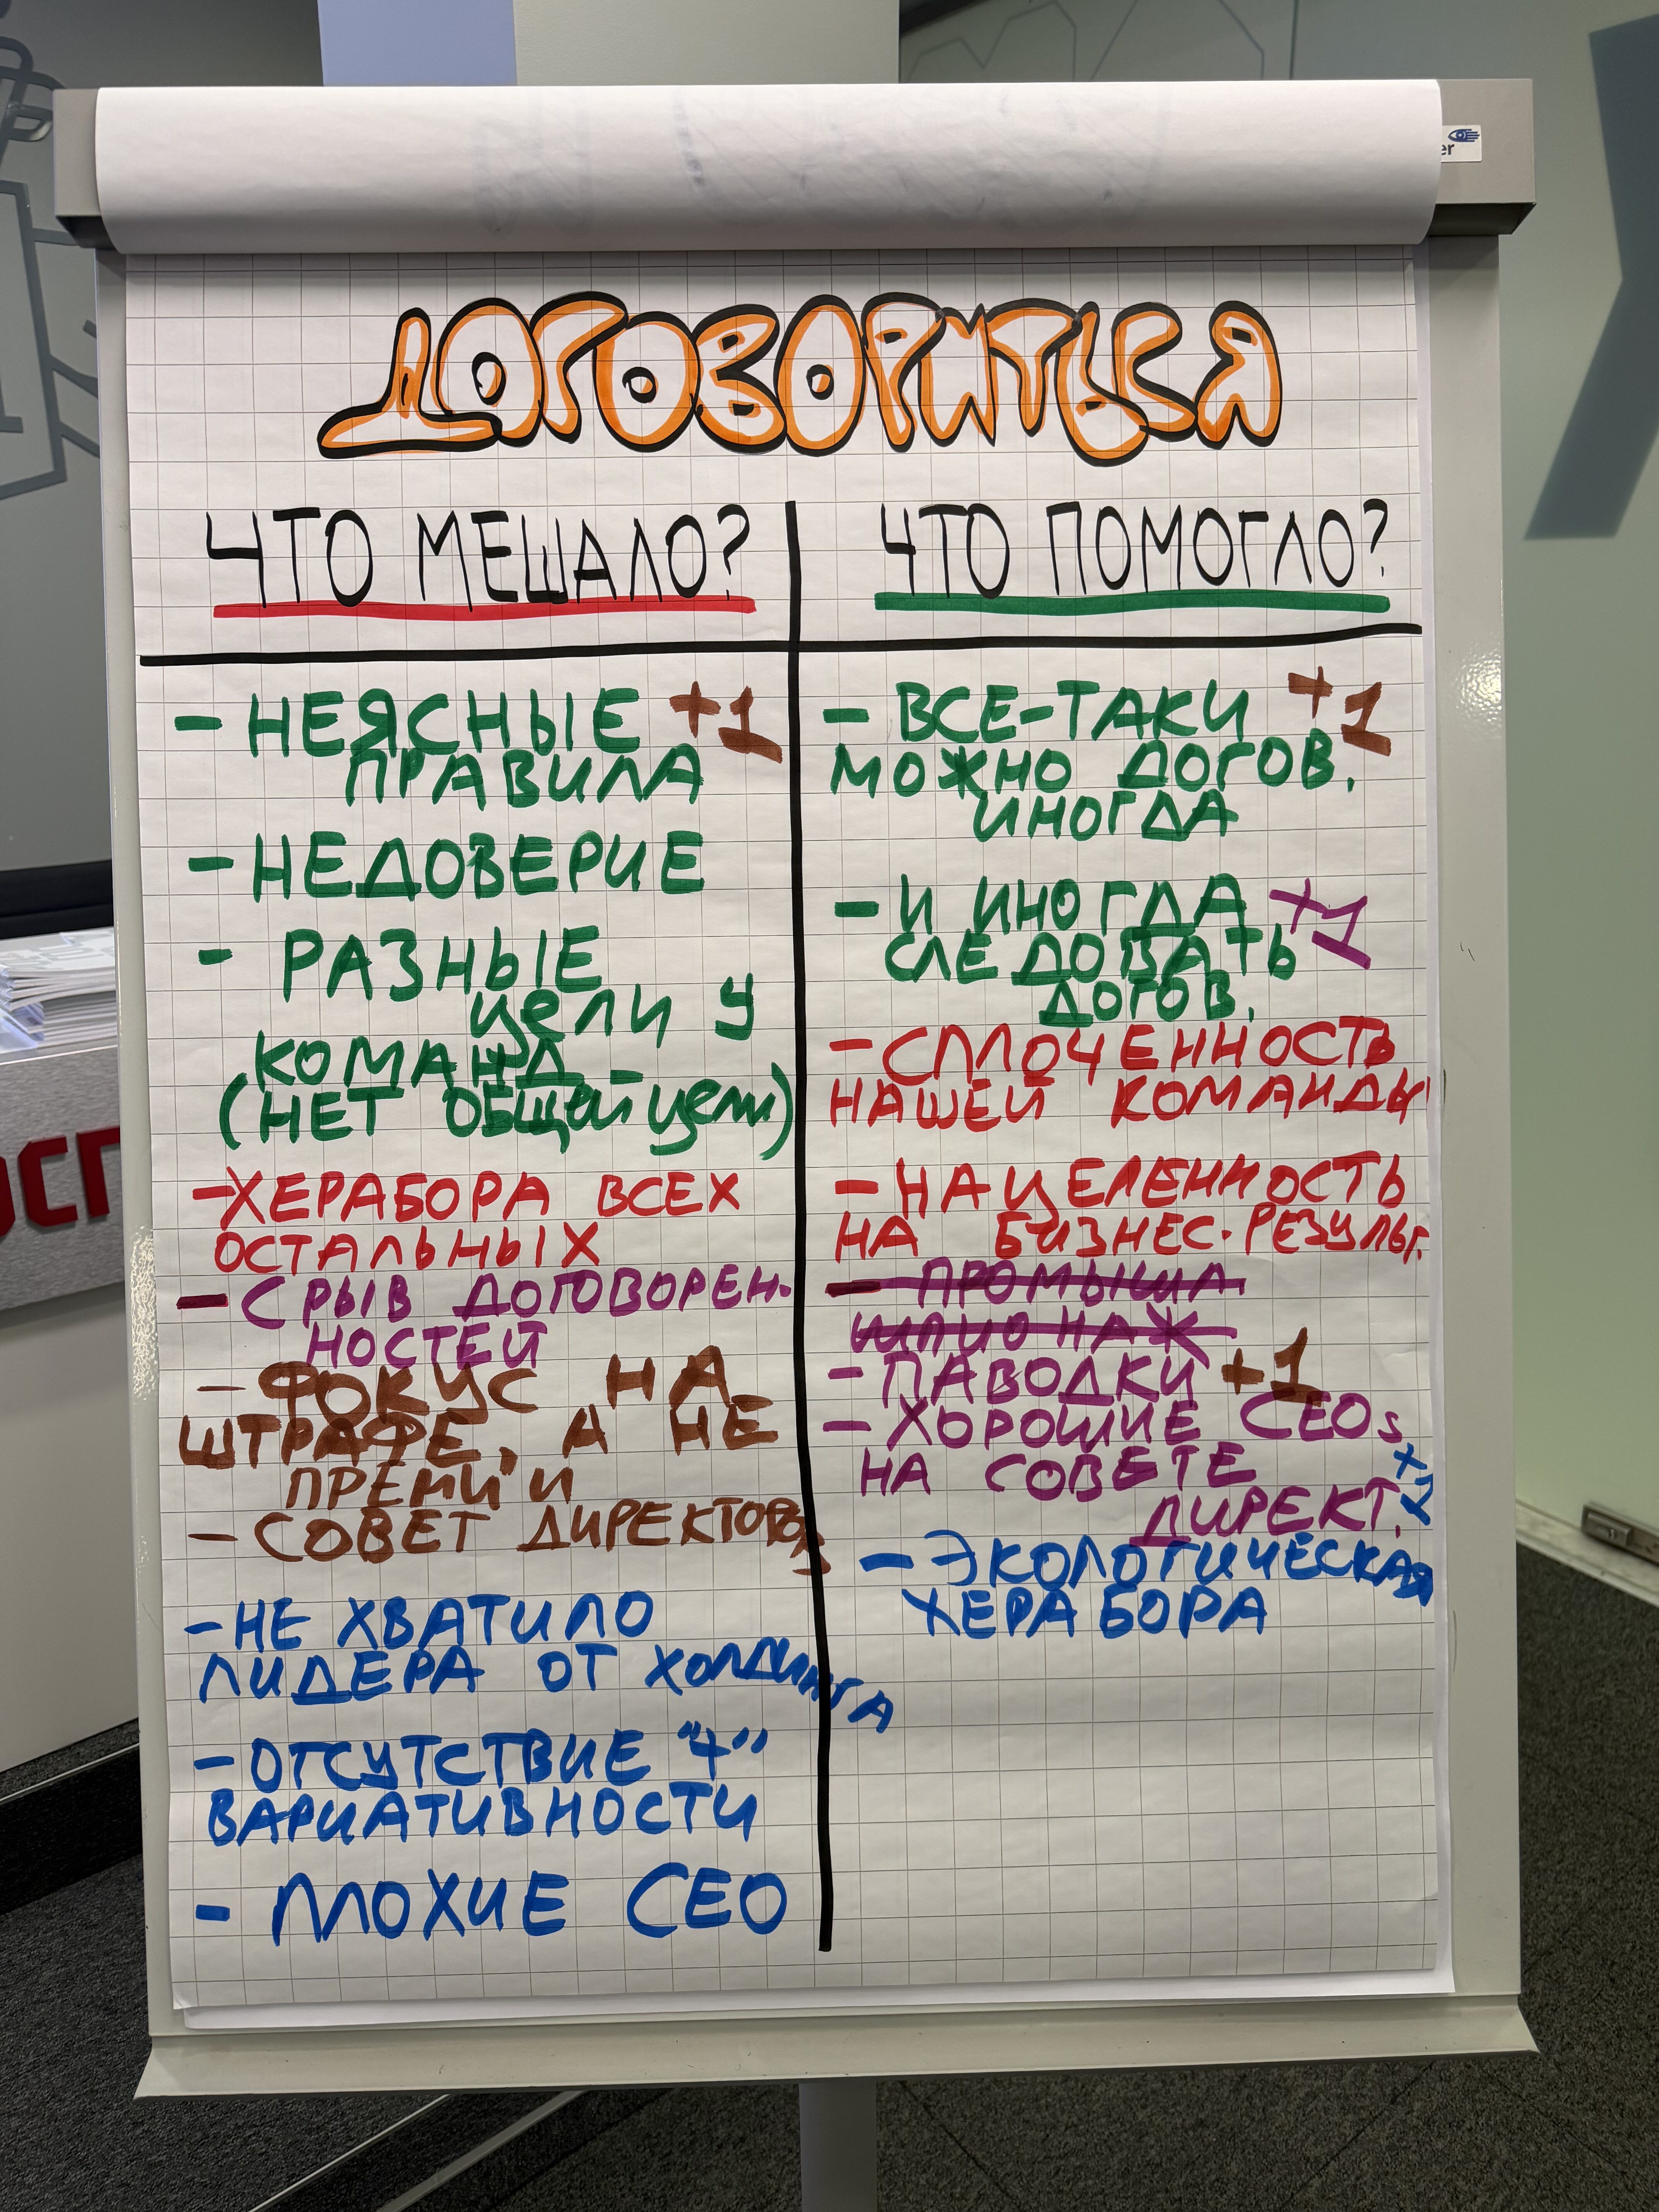 ДОГОВОРИТЬСЯ
ЧТО МЕШАЛО?
- НЕЯСНЫЕ +1
ПРАВИЛА
- НЕДОВЕРИЕ
- РАЗНЫЕ
цели у
КОМАНД
(НЕТ ОБЩей цели)
- ХЕРАБОРА ВСЕХ
ОСТАЛЬНЫХ
- СРЫВ ДОГОВОРЕН-
НОСТЕЙ
- ФОКУС НА
ШТРАФЕ, А НЕ
ПРЕМИИ
- СОВЕТ ДИРЕКТОРОВ
- НЕ ХВАТИЛО
ЛИДЕРА ОТ ХОЛДИНГА
- ОТСУТСТВИЕ "4"
ВАРИАТИВНОСТИ
- ПЛОХИЕ CEO
ЧТО ПОМОГЛО?
- ВСЕ-ТАКИ +1
МОЖНО ДОГОВ.
ИНОГДА
- И ИНОГДА +1
СЛЕДОВАТЬ
ДОГОВ.
- СПЛОЧЕННОСТЬ
НАШЕЙ КОМАНДЫ
- НАЦЕЛЕННОСТЬ
НА БИЗНЕС-РЕЗУЛЬТ.
- ПРОМЫШЛ
ШПИОНАЖ
- ПАВОДКИ +1
- ХОРОШИЕ CEOs
НА СОВЕТЕ
ДИРЕКТ.
- ЭКОЛОГИЧЕСКАЯ
ХЕРАБОРА